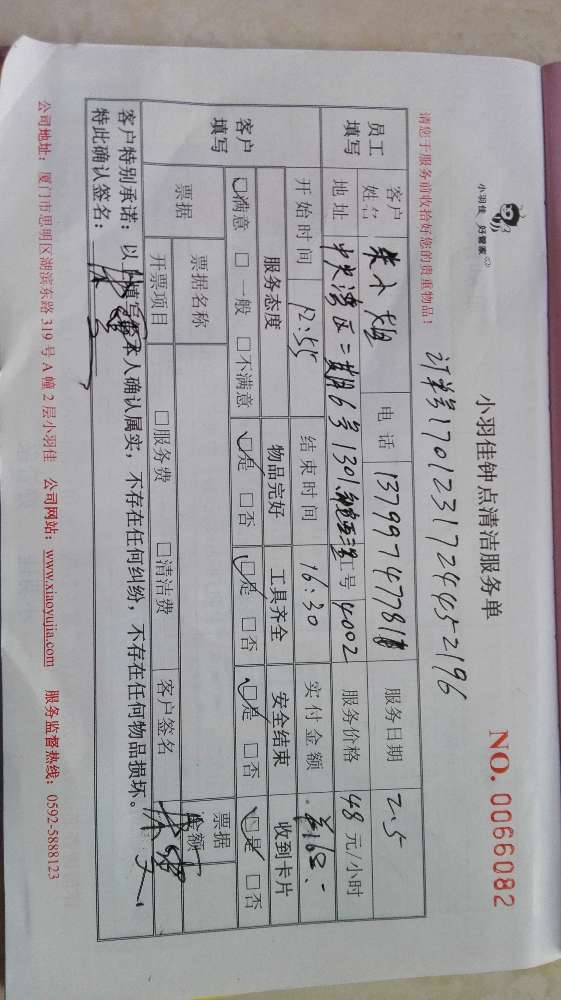 小羽佳 好管家
小羽佳钟点清洁服务单
NO. 0066082
订单号1701231724452196
请您于服务前收拾好您的贵重物品！
员工填写
客户姓名 朱小姐 电话 13799747781 服务日期 2.5
地址 中央湾区二期6号1301 工号 4002 服务价格 48 元/小时
开始时间 12:55 结束时间 16:30 实付金额 168
客户填写
服务态度 物品完好 工具齐全 安全结束 收到卡片
☑满意 □一般 □不满意 ☑是 □否 ☑是 □否 ☑是 □否 ☑是 □否
票据 票据名称 票据金额
开票项目 □服务费 □清洁费 客户签名
客户特别承诺：以上填写的本人确认属实，不存在任何纠纷，不存在任何物品损坏。
特此确认签名：
公司地址：厦门市思明区湖滨东路 319 号 A 幢 2 层小羽佳 公司网站：www.xiaoyujia.com 服务监督热线：0592-5888123